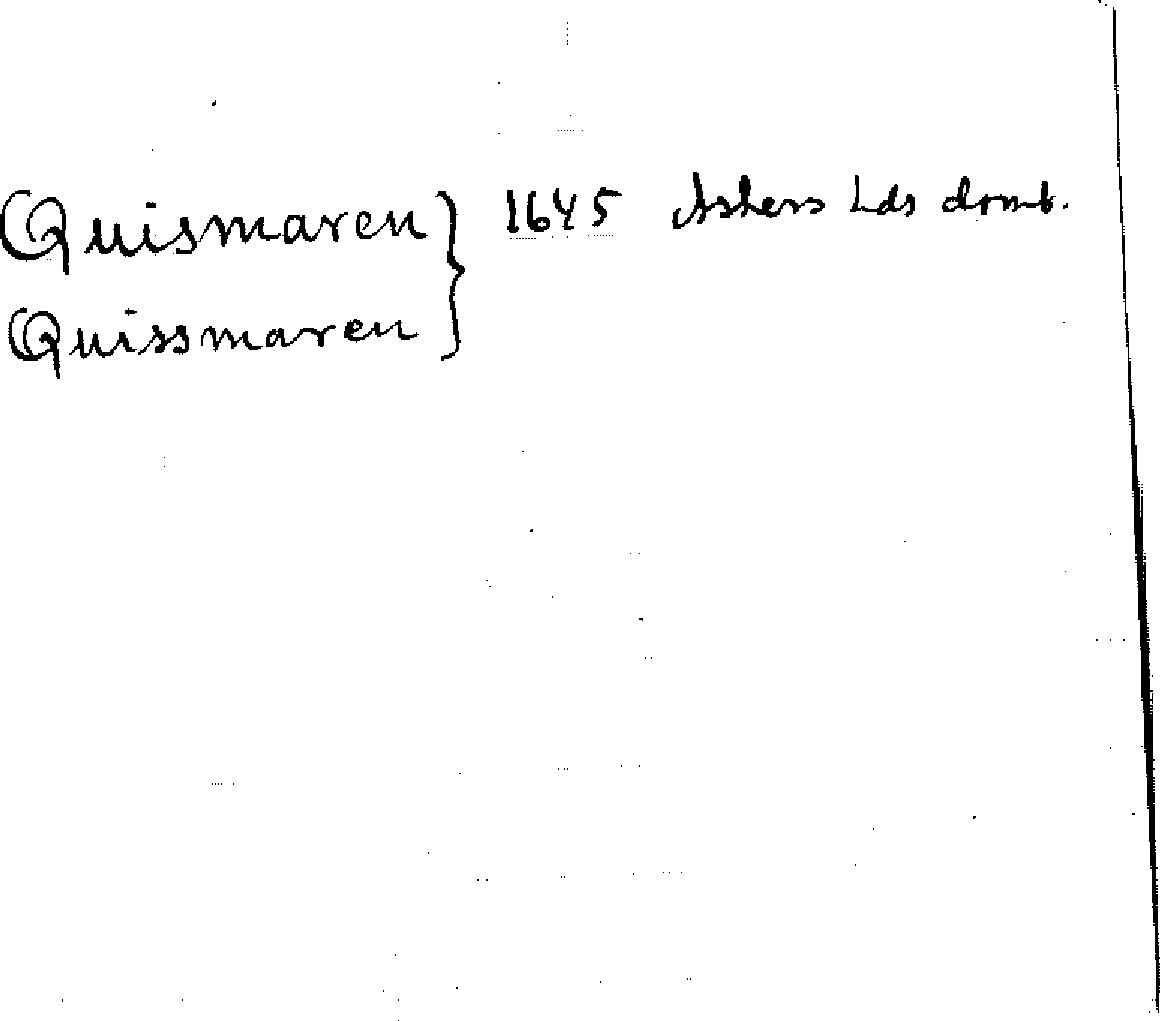 Quismaren } 1645 Askers hds domb.
Quissmaren